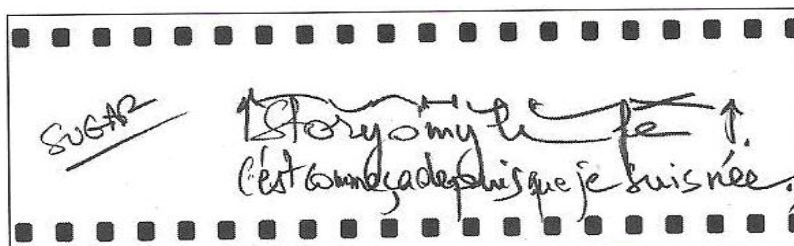 SUGAR
Story o my life
C'est commeça depuis que je suis née.